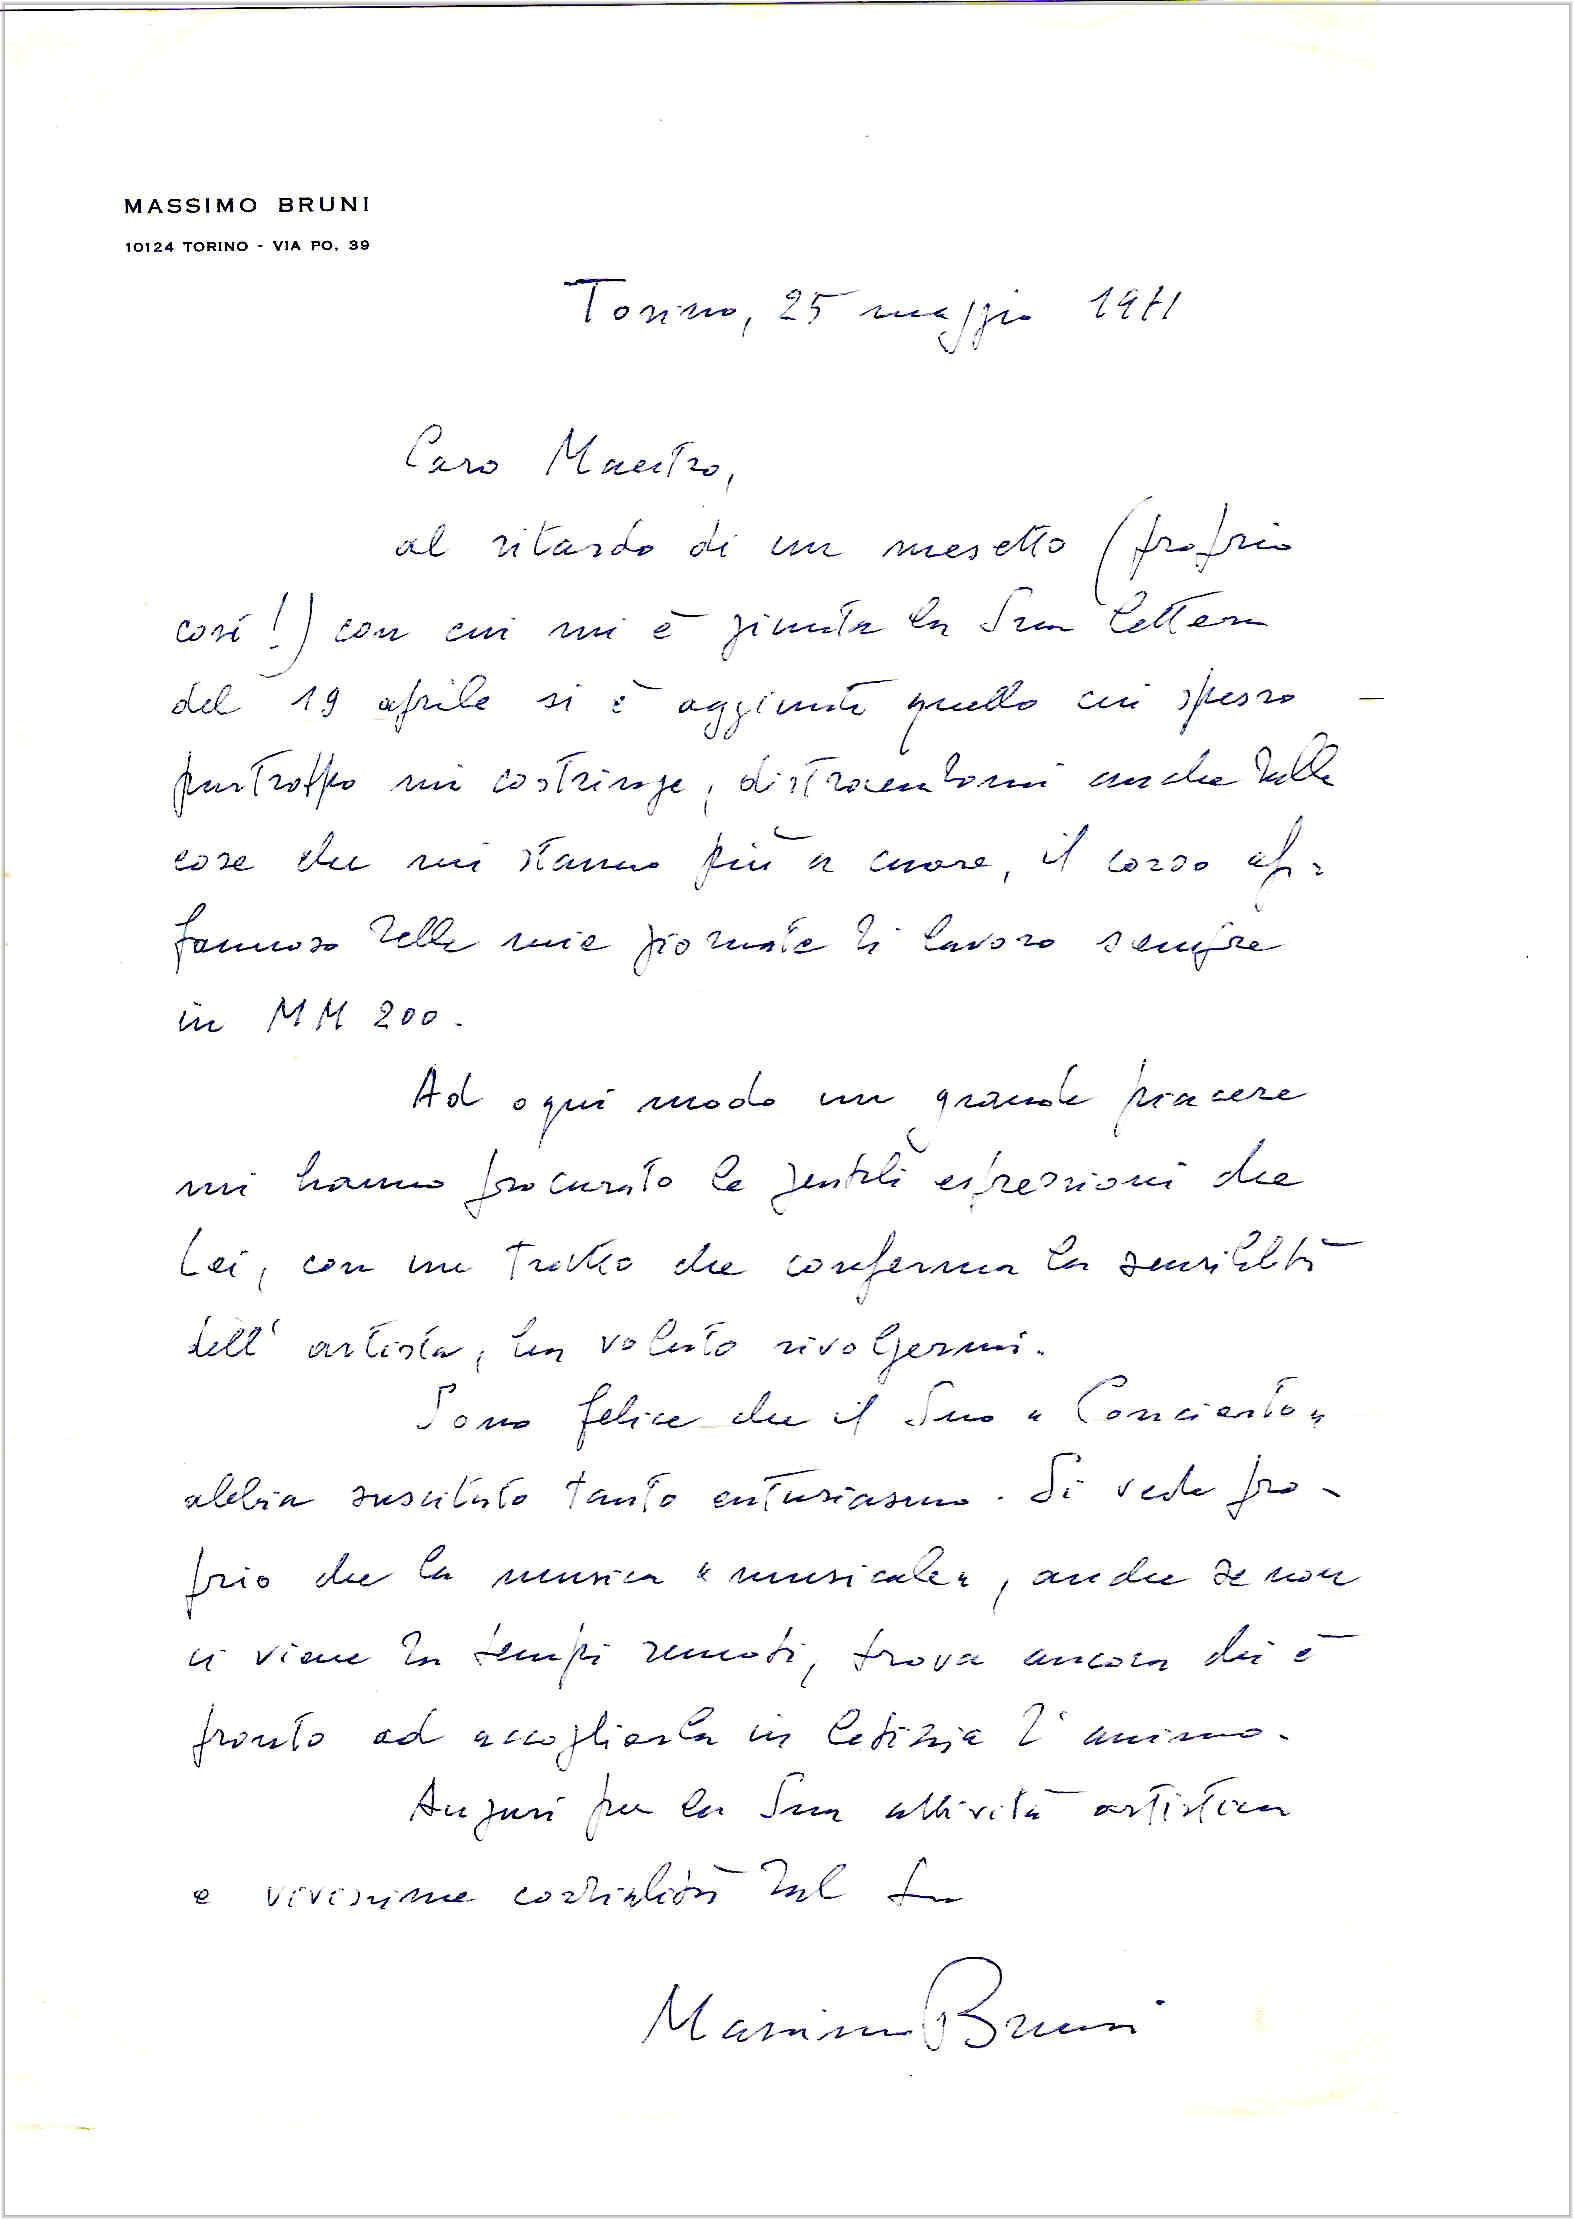 MASSIMO BRUNI
10124 TORINO - VIA PO, 39
Torino, 25 maggio 1971
Caro Maestro,
al ritardo di un mesetto (proprio
così!) con cui mi è giunta la Sua lettera
del 19 aprile si è aggiunto quello cui spesso
purtroppo mi costringe, distraendomi anche dalle
cose che mi stanno più a cuore, il corso af-
fannoso delle mie giornate di lavoro sempre
in MM 200.
Ad ogni modo un grande piacere
mi hanno procurato le gentili espressioni che
Lei, con un tratto che conferma la sensibilità
dell'artista, ha voluto rivolgermi.
Sono felice che il Suo "Concierto"
abbia suscitato tanto entusiasmo. Si vede pro-
prio che la musica "musicale", anche se non
ci viene da tempi remoti, trova ancora chi è
pronto ad accoglierla in letizia d'animo.
Auguri per la Sua attività artistica
e vivissime cordialità dal Suo
Massimo Bruni